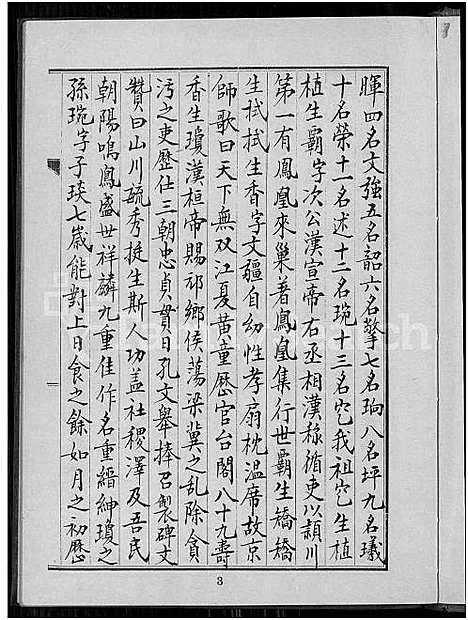 暉四名文強五名韶六名擎七名珦八名坪九名璣
十名榮十一名述十二名琬十三名乞我祖乞生植
植生霸字次公漢宣帝右丞相漢称循吏以頴川
第一有鳳凰來巢著鳳凰集行世霸生矯矯
生拭拭生香字文疆自幼性孝扇枕温席故京
師歌曰天下無双江夏黄童歷官台閣八十九壽
香生瓊漢桓帝賜祁鄉侯蕩梁冀之乱除貪
污之吏歷仕三朝忠貞貫日孔文舉捧召製碑文
贊曰山川毓秀挺生斯人功盖社稷澤及吾民
朝陽鳴鳳盛世祥麟九重佳作名重縉紳瓊之
孫琬字子琰七歳能對上日食之餘如月之初歷
3